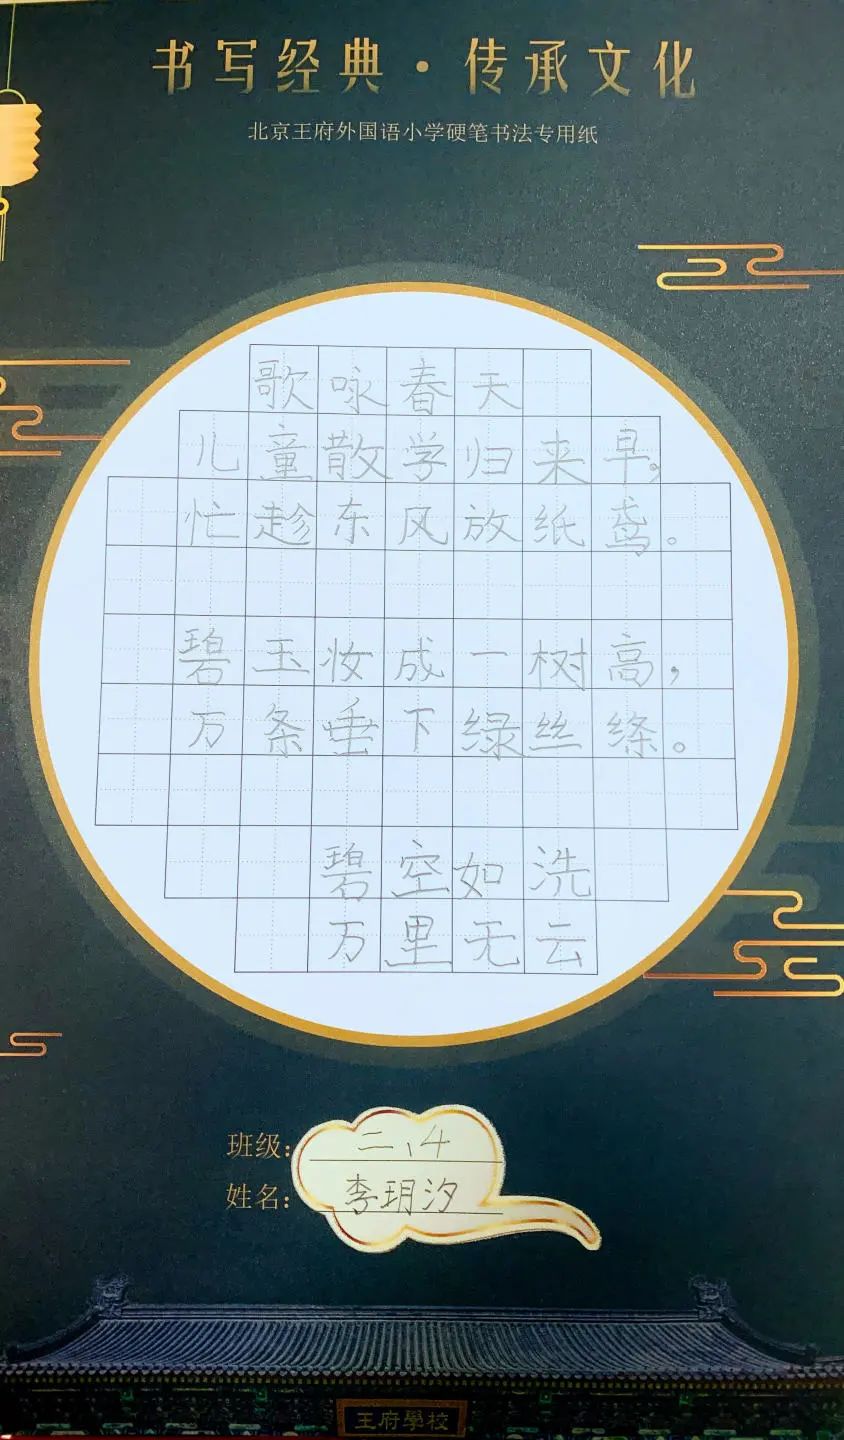 书写经典·传承文化
北京王府外国语小学硬笔书法专用纸
歌咏春天
儿童散学归来早，
忙趁东风放纸鸢。
碧玉妆成一树高，
万条垂下绿丝绦。
碧空如洗
万里无云
班级：二、4
姓名：李玥汐
王府學校